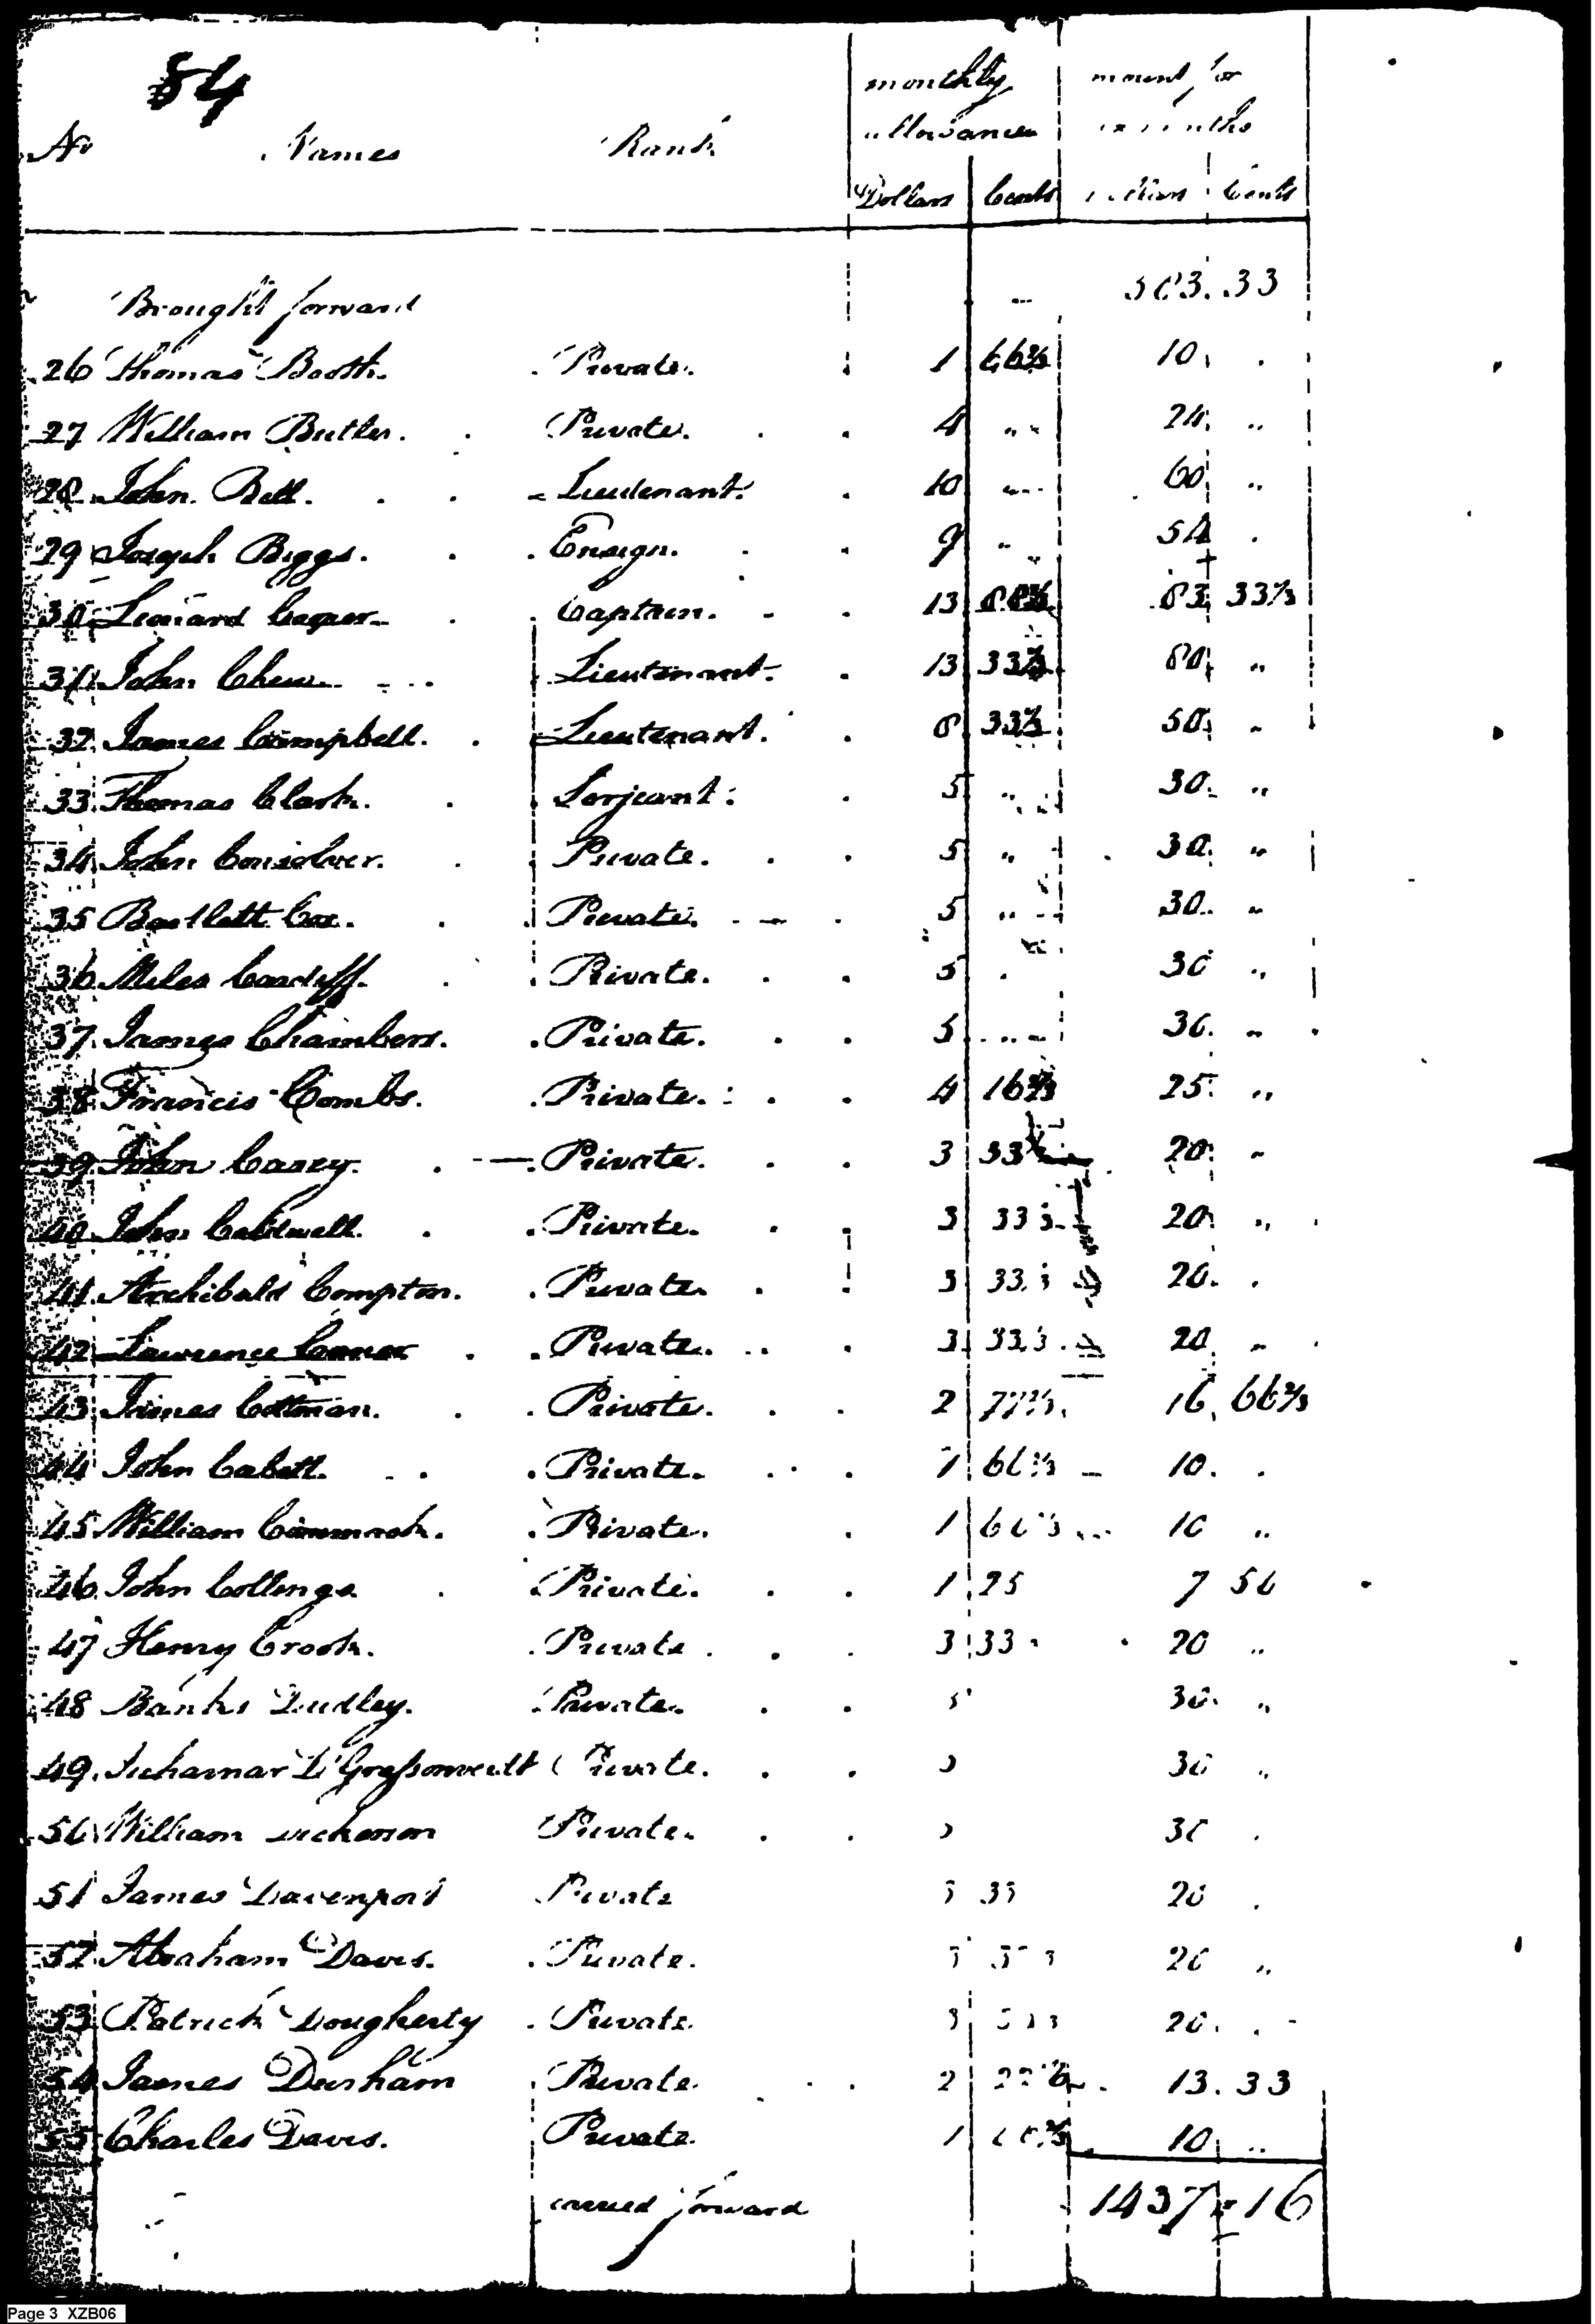 84
monthly mount for
No Names Rank allowance months
Dollars Cents Cents
Brought forward 33
26 Thomas Booth. Private. 1 66⅔ 10. .
27 William Butler. Private. 4 „ 24. „
28 John Bell. Lieutenant. 10 „ 60 „
29 Joseph Biggs. Ensign. 9 „ 54 .
30 Leonard Cooper Captain. 13 83 33⅓
31 John Chew Lieutenant. 13 33⅓ 80 „
32 James Campbell. Lieutenant. 8 33⅓ 50 „
33 Thomas Clark. Serjeant. 5 „ 30. „
34 John Consolver. Private. 5 „ 30. „
35 Bartlett Cox. Private. 5 „ 30. „
36 Miles Cardiff. Private. 5 . 30 „
37 James Chambers. Private. 5 30. „
38 Francis Combs. Private. 4 16⅔ 25. „
39 John Casey. Private. 3 33⅓ 20. „
40 John Caldwell. Private. 3 33 20. „
41. Archibald Compton. Private. 3 33 20. .
42 Lawrence Conner Private. 3 33 20 „
43 James Cottman. Private. 2 77 16. 66⅔
44 John Cabell. Private. 1 66⅔ 10. .
45 William Cammack. Private. 1 66 10 „
46 John Collings Private. 1 25 7 50
47 Henry Crook. Private. 3 33 20 „
48 Banks Dudley. Private. 5 30. „
49. Private. 30 „
50 William Dickerson Private. 30 .
51 James Davenport Private 3 33 20 .
52 Abraham Davis. Private. 3 20 „
53 Patrick Dougherty Private. 3 20. .
54 James Durham Private. 2 13. 33
55 Charles Davis. Private. 1 10 „
carried forward 1437 = 16
Page 3 XZB06